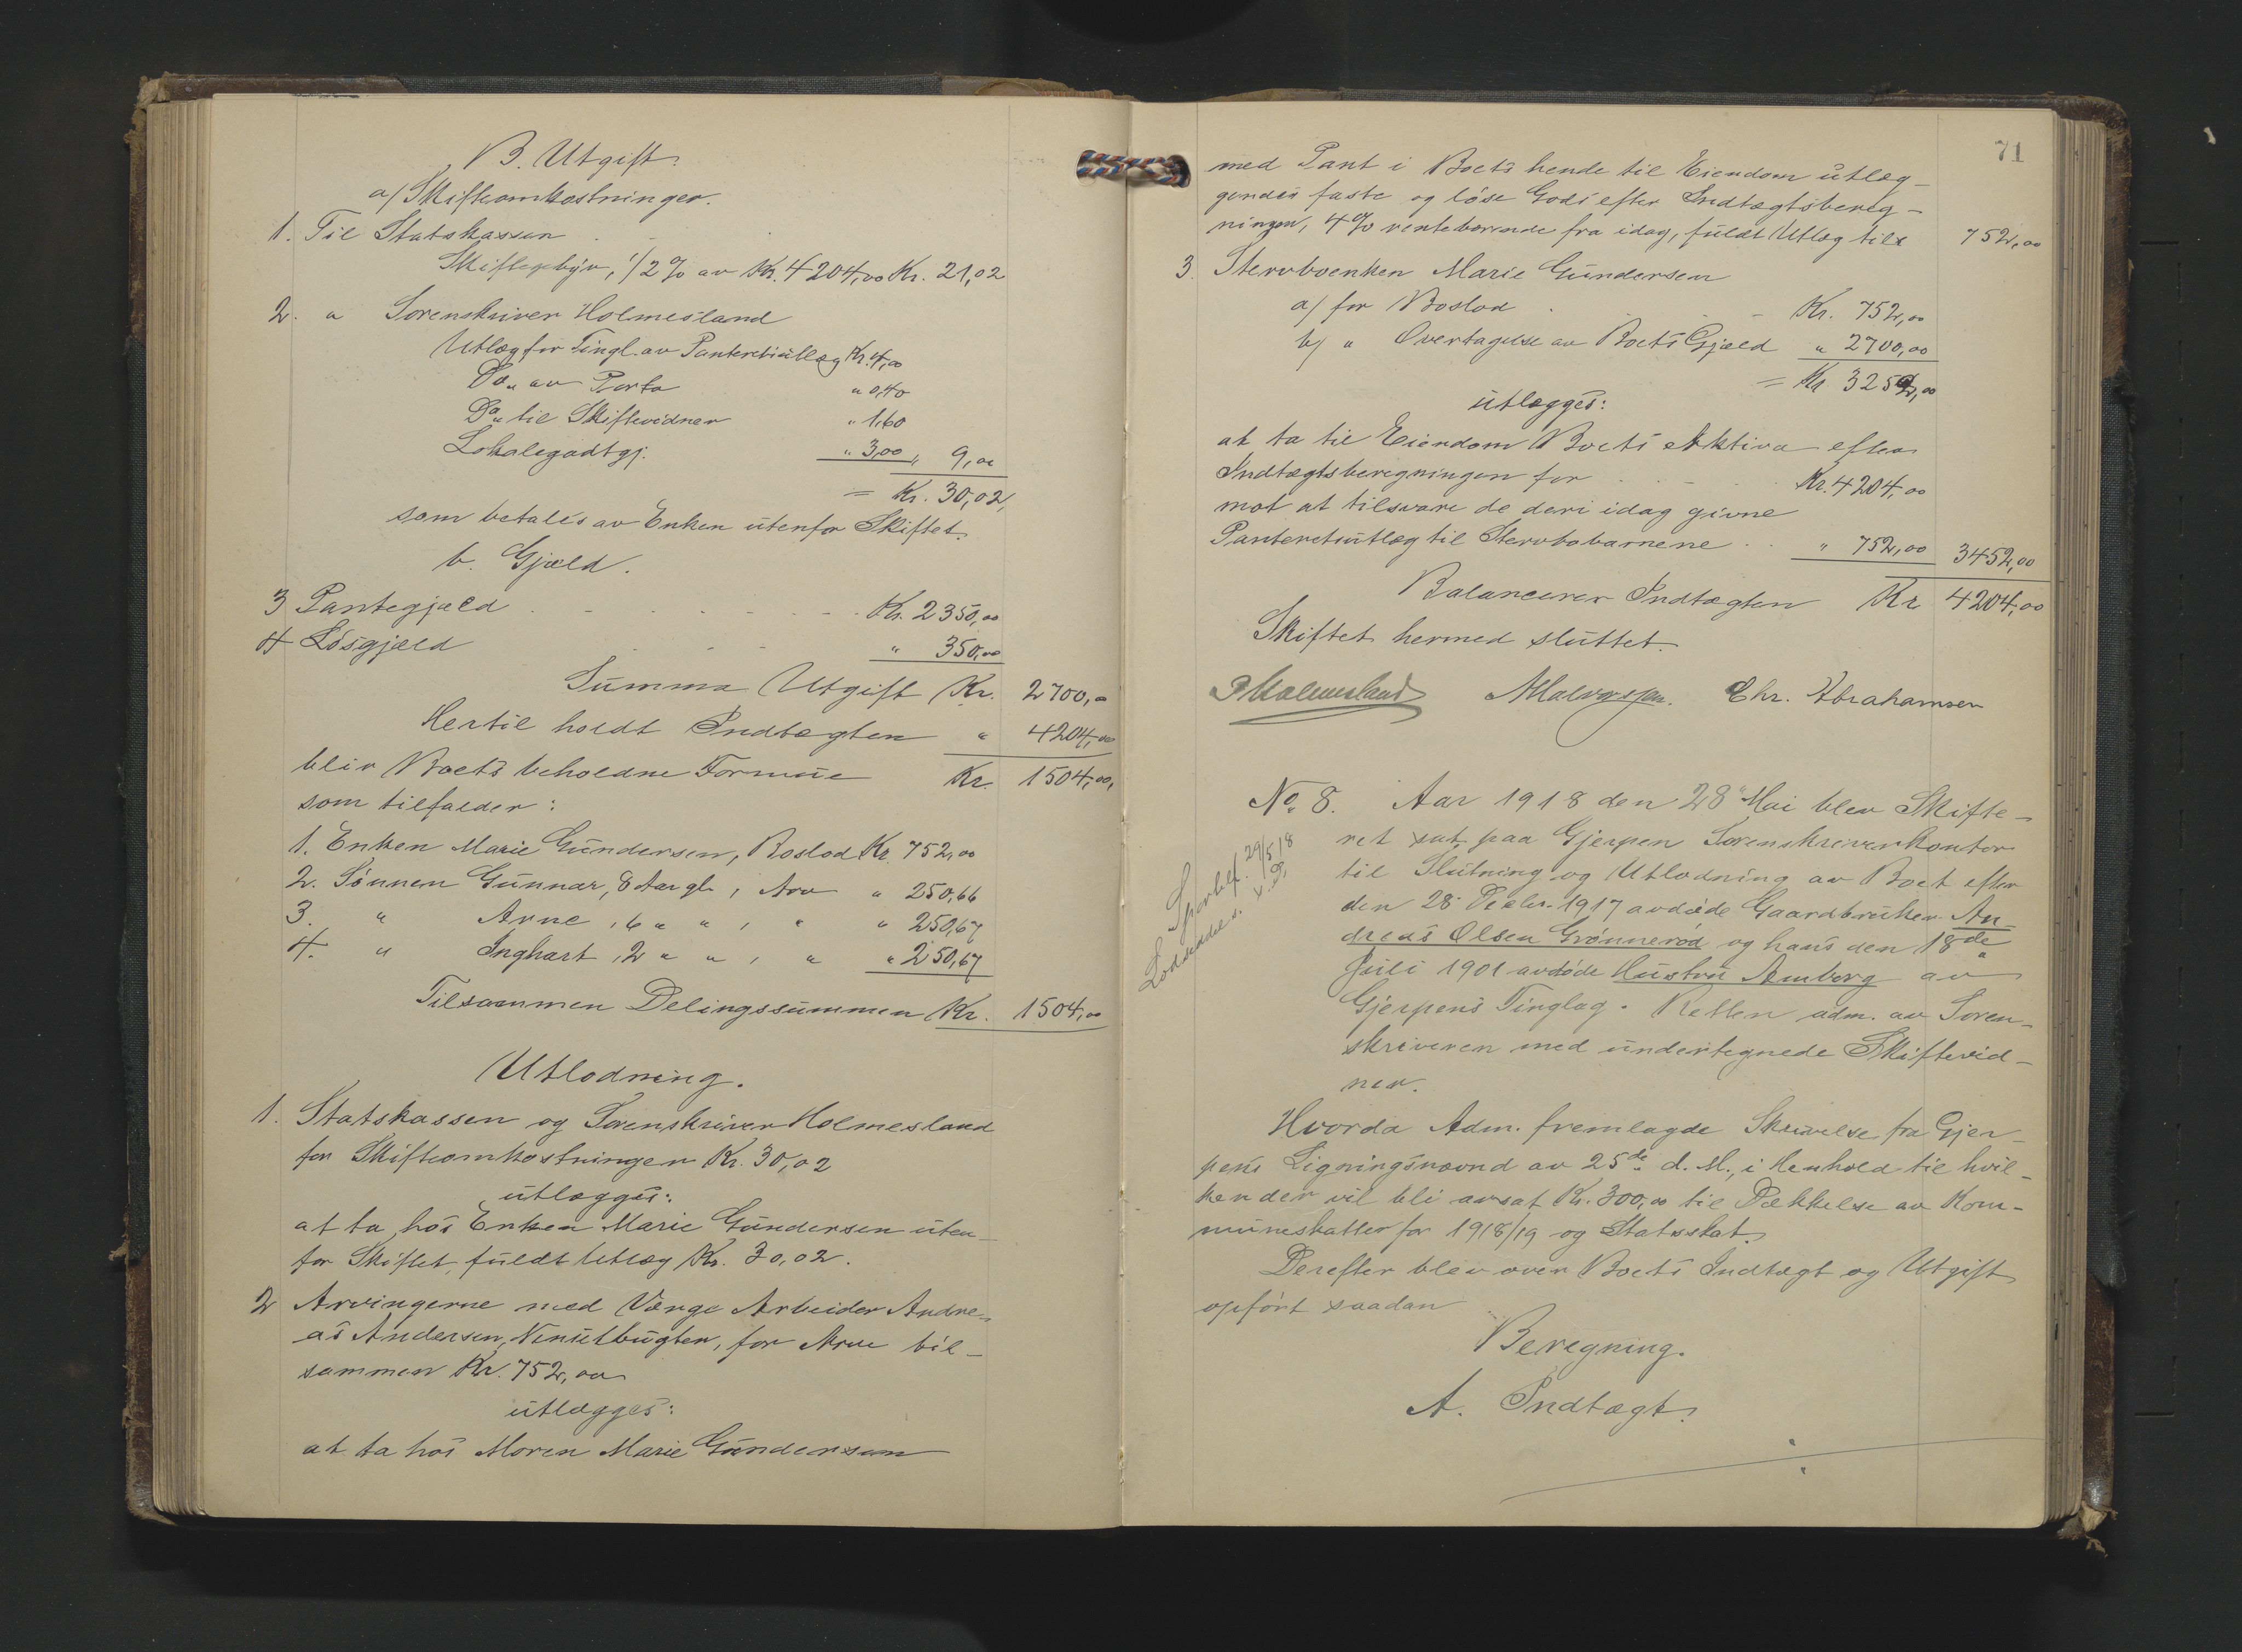 B. Utgift.
a/ Skifteomkostninger.
1. Til Statskassen
Skiftegebyr, 1/2 % av Kr. 4204,00 Kr. 21,02
2. " Sorenskriver Holmesland
Utlæg for Tingl. av Panteretsutlæg Kr. 4,00
Do. av Porto " 0,40
Do. til Skiftevidner " 1,60
Lokalegodtgj. " 3,00 " 9,00
= Kr. 30,02,
som betales av Enken utenfor Skiftet.
b. Gjæld.
3 Pantegjæld Kr. 2350,00
4 Løsgjæld " 350,00
Summa Utgift Kr. 2700,00
Hertil holdt Indtægten " 4204,00
bliv Boets beholdne Formue Kr. 1504,00,
som tilfalder:
1. Enken Marie Gundersen, Boslod Kr. 752,00
2. Sønnen Gunnar, 8 Aar gl., Arv " 250,66
3. " Arne, 6 " " , " " 250,67
4. " Inghart, 2 " " , " " 250,67
Tilsammen Delingssummen Kr. 1504,00
Utlodning.
1. Statskassen og Sorenskriver Holmesland
for Skifteomkostningen Kr. 30,02
utlægges:
at ta hos Enken Marie Gundersen uten-
for Skiftet, fuldt Utlæg Kr. 30,02.
2 Arvingerne med Værge Arbeider Andre-
as Andersen, for Arve til-
sammen Kr. 752,00
utlægges:
at ta hos Moren Marie Gundersen
71
med Pant i Boets hende til Eiendom utlæg-
gendes faste og løse Gods efter Indtægtsbereg-
ningen, 4 % rentebærende fra idag, fuldt Utlæg til 752,00
3. Stervboenken Marie Gundersen
a/ for Boslod Kr. 752,00
b/ " Overtagelse av Boets Gjæld " 2700,00
= Kr 3252,00
utlægges:
at ta til Eiendom Boets Aktiva efter
Indtægtsberegningen for Kr. 4204,00
mot at tilsvare de deri idag givne
Panteretsutlæg til Stervbobarnene " 752,00 3452,00
Balancerer Indtægten Kr 4204,00
Skiftet hermed sluttet.
P Holmesland A Halvorsen. Chr. Abrahamsen
No. 8. Aar 1918 den 28 Mai blev Skifte-
ret sat paa Gjerpen Sorenskriverkontor
til Slutning og Utlodning av Boet efter
den 28 Decbr. 1917 avdøde Gaardbruker An-
dreas Olsen Grønnerød og hans den 18de
Juli 1901 avdøde Hustru Amborg av
Gjerpens Tinglag. Retten adm. av Soren-
skriveren med undertegnede Skiftevid-
ner.
29/5 18
Hvorda Adm. fremlagde Skrivelse fra Gjer-
pens Ligningsnævnd av 25de d. M., i Henhold til hvil-
ken der vil bli avsat Kr. 300,00 til Dækkelse av Kom-
muneskatter for 1918/19 og Statsskat.
Derefter blev over Boets Indtægt og Utgift
opført saadan
Beregning.
A. Indtægt.